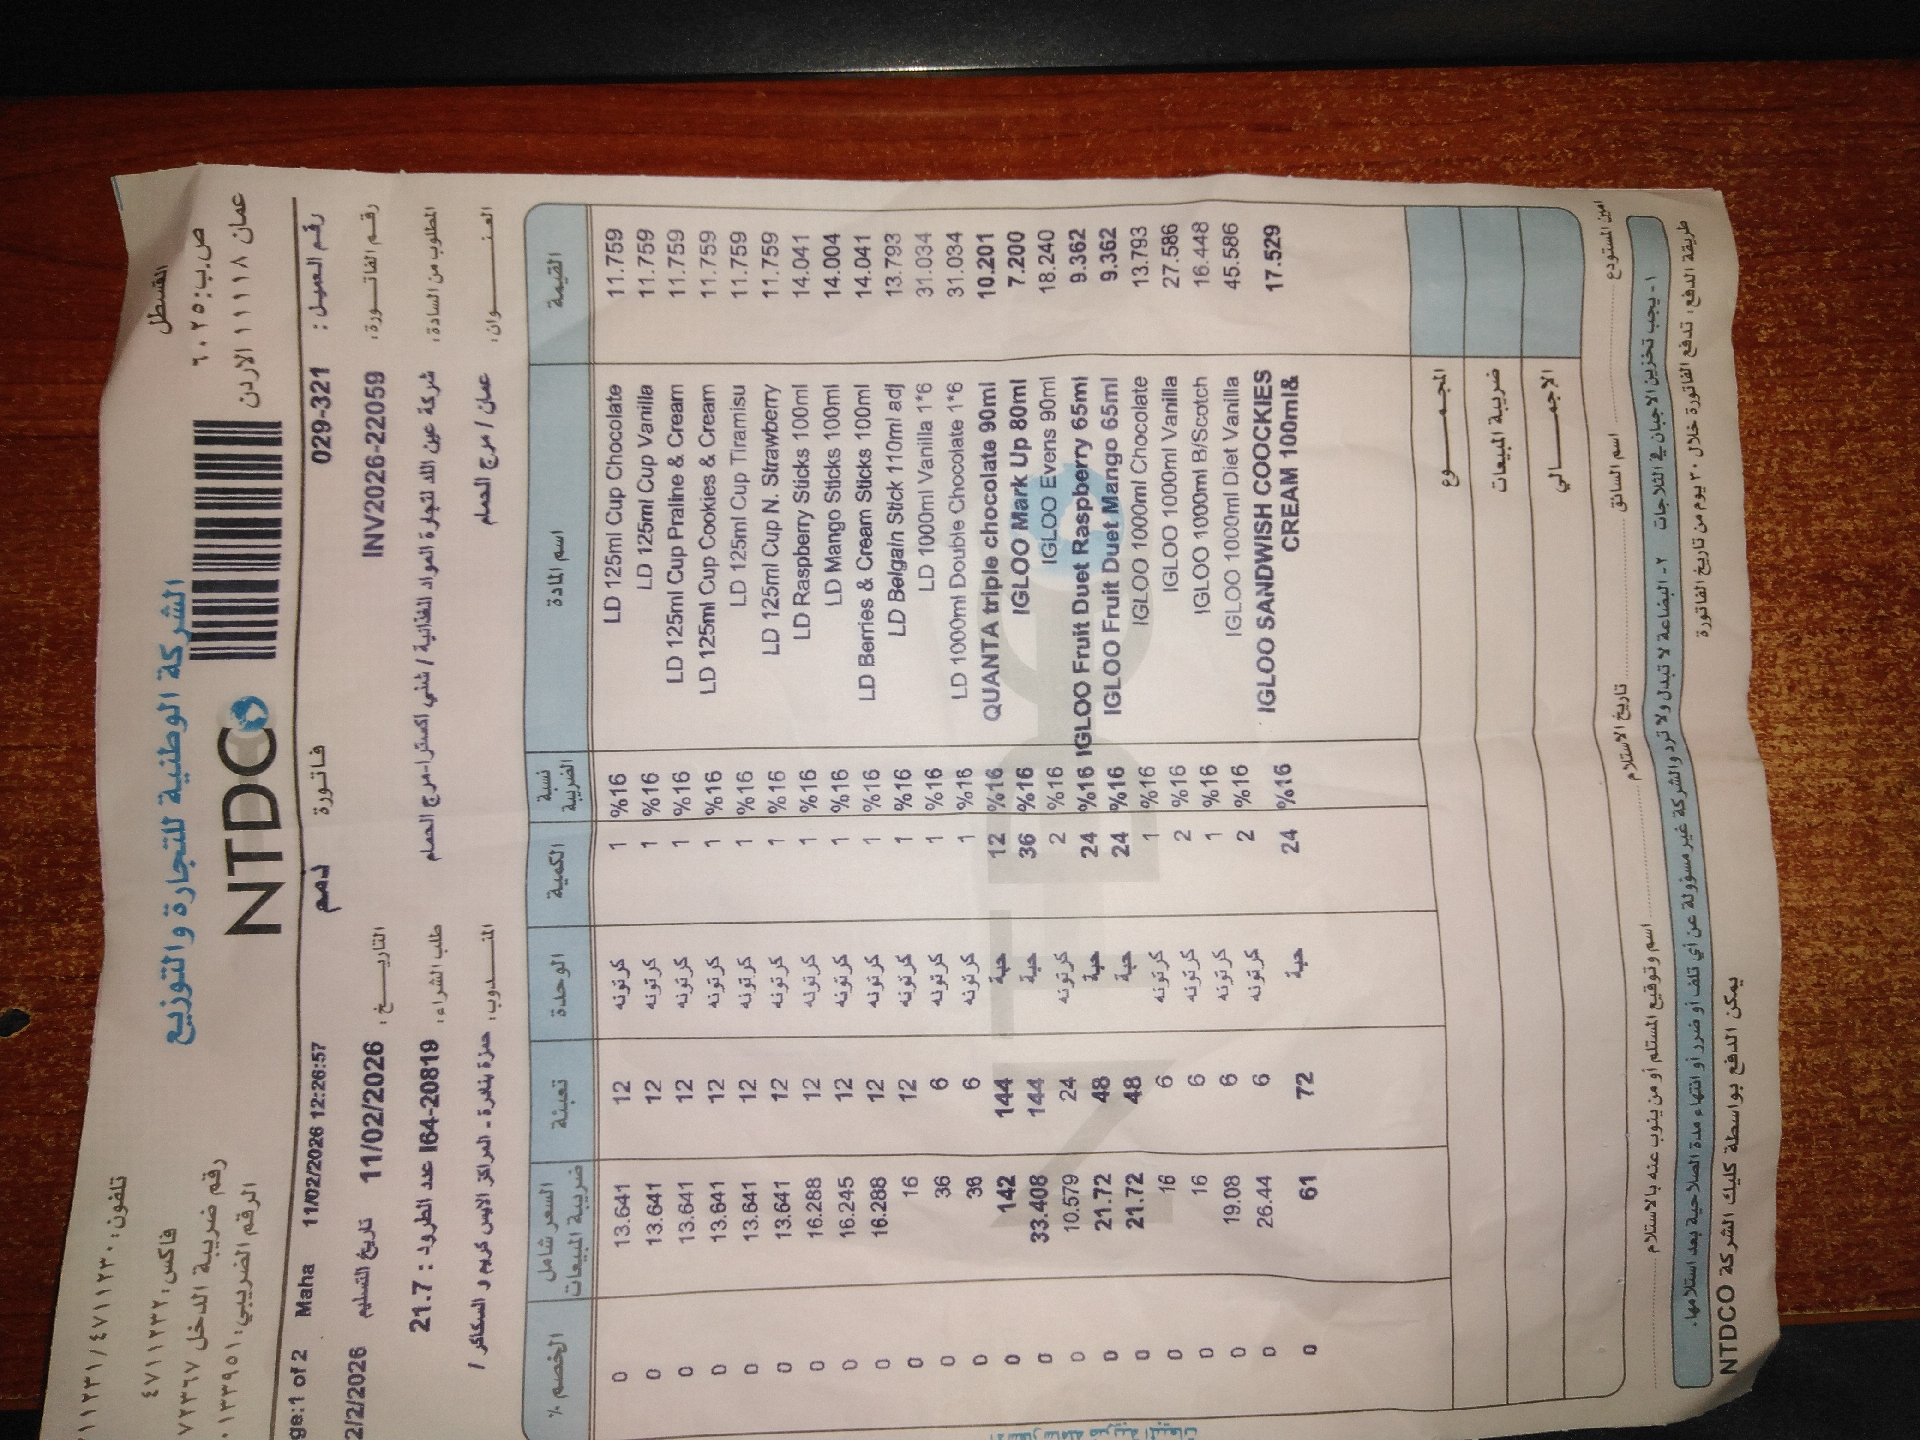 القسطل
ص.ب: ٦٠٢٥
عمان ١١١١٨ الاردن
الشركة الوطنية للتجارة والتوزيع
NTDCO
تلفون: ٤٧١١٢٣٠ / ٤٧١١٢٣١
فاكس: ٤٧١١٢٣٢
رقم ضريبة الدخل ٧٢٣٦٧
رقم العميل: 029-321 فاتورة ذمم 11/02/2026 12:26:57 Maha ge:1 of 2
رقم الفاتورة: INV2026-22059 التاريخ: 11/02/2026 تاريخ التسليم 2/2/2026
المطلوب من السادة: شركة عين اللد لتجارة المواد الغذائية / شني اكسترا-مرج الحمام طلب الشراء: I64-20819 عدد الطرود: 21.7
العنوان: عمان / مرج الحمام المندوب:
القيمة اسم المادة نسبة الضريبة الكمية الوحدة تعبئة السعر شامل ضريبة المبيعات الخصم %
11.759 LD 125ml Cup Chocolate %16 1 كرتونه 12 13.641 0
11.759 LD 125ml Cup Vanilla %16 1 كرتونه 12 13.641 0
11.759 LD 125ml Cup Praline & Cream %16 1 كرتونه 12 13.641 0
11.759 LD 125ml Cup Cookies & Cream %16 1 كرتونه 12 13.641 0
11.759 LD 125ml Cup Tiramisu %16 1 كرتونه 12 13.641 0
11.759 LD 125ml Cup N. Strawberry %16 1 كرتونه 12 13.641 0
14.041 LD Raspberry Sticks 100ml %16 1 كرتونه 12 16.288 0
14.004 LD Mango Sticks 100ml %16 1 كرتونه 12 16.245 0
14.041 LD Berries & Cream Sticks 100ml %16 1 كرتونه 12 16.288 0
13.793 LD Belgain Stick 110ml adj %16 1 كرتونه 12 16 0
31.034 LD 1000ml Vanilla 1*6 %16 1 كرتونه 6 36 0
31.034 LD 1000ml Double Chocolate 1*6 %16 1 كرتونه 6 36 0
10.201 QUANTA triple chocolate 90ml %16 12 حبة 144 142 0
7.200 IGLOO Mark Up 80ml %16 36 حبة 144 33.408 0
18.240 IGLOO Evens 90ml %16 2 كرتونه 24 10.579 0
9.362 IGLOO Fruit Duet Raspberry 65ml %16 24 حبة 48 21.72 0
9.362 IGLOO Fruit Duet Mango 65ml %16 24 حبة 48 21.72 0
13.793 IGLOO 1000ml Chocolate %16 1 كرتونه 6 16 0
27.586 IGLOO 1000ml Vanilla %16 2 كرتونه 6 16 0
16.448 IGLOO 1000ml B/Scotch %16 1 كرتونه 6 19.08 0
45.586 IGLOO 1000ml Diet Vanilla %16 2 كرتونه 6 26.44 0
17.529 IGLOO SANDWISH COOCKIES %16 24 حبة 72 61 0
CREAM 100ml&
المجمـــوع
ضريبة المبيعات
الاجمـــالي
امين المستودع اسم السائق تاريخ الاستلام اسم وتوقيع المستلم أو من ينوب عنه بالاستلام
١- يجب تخزين الاجبان في الثلاجات ٢- البضاعة لا تبدل ولا ترد والشركة غير مسؤولة عن أي تلف أو ضرر أو انتهاء مدة الصلاحية بعد استلامها.
طريقة الدفع: تدفع الفاتورة خلال ٣٠ يوم من تاريخ الفاتورة يمكن الدفع بواسطة كليك الشركة NTDCO